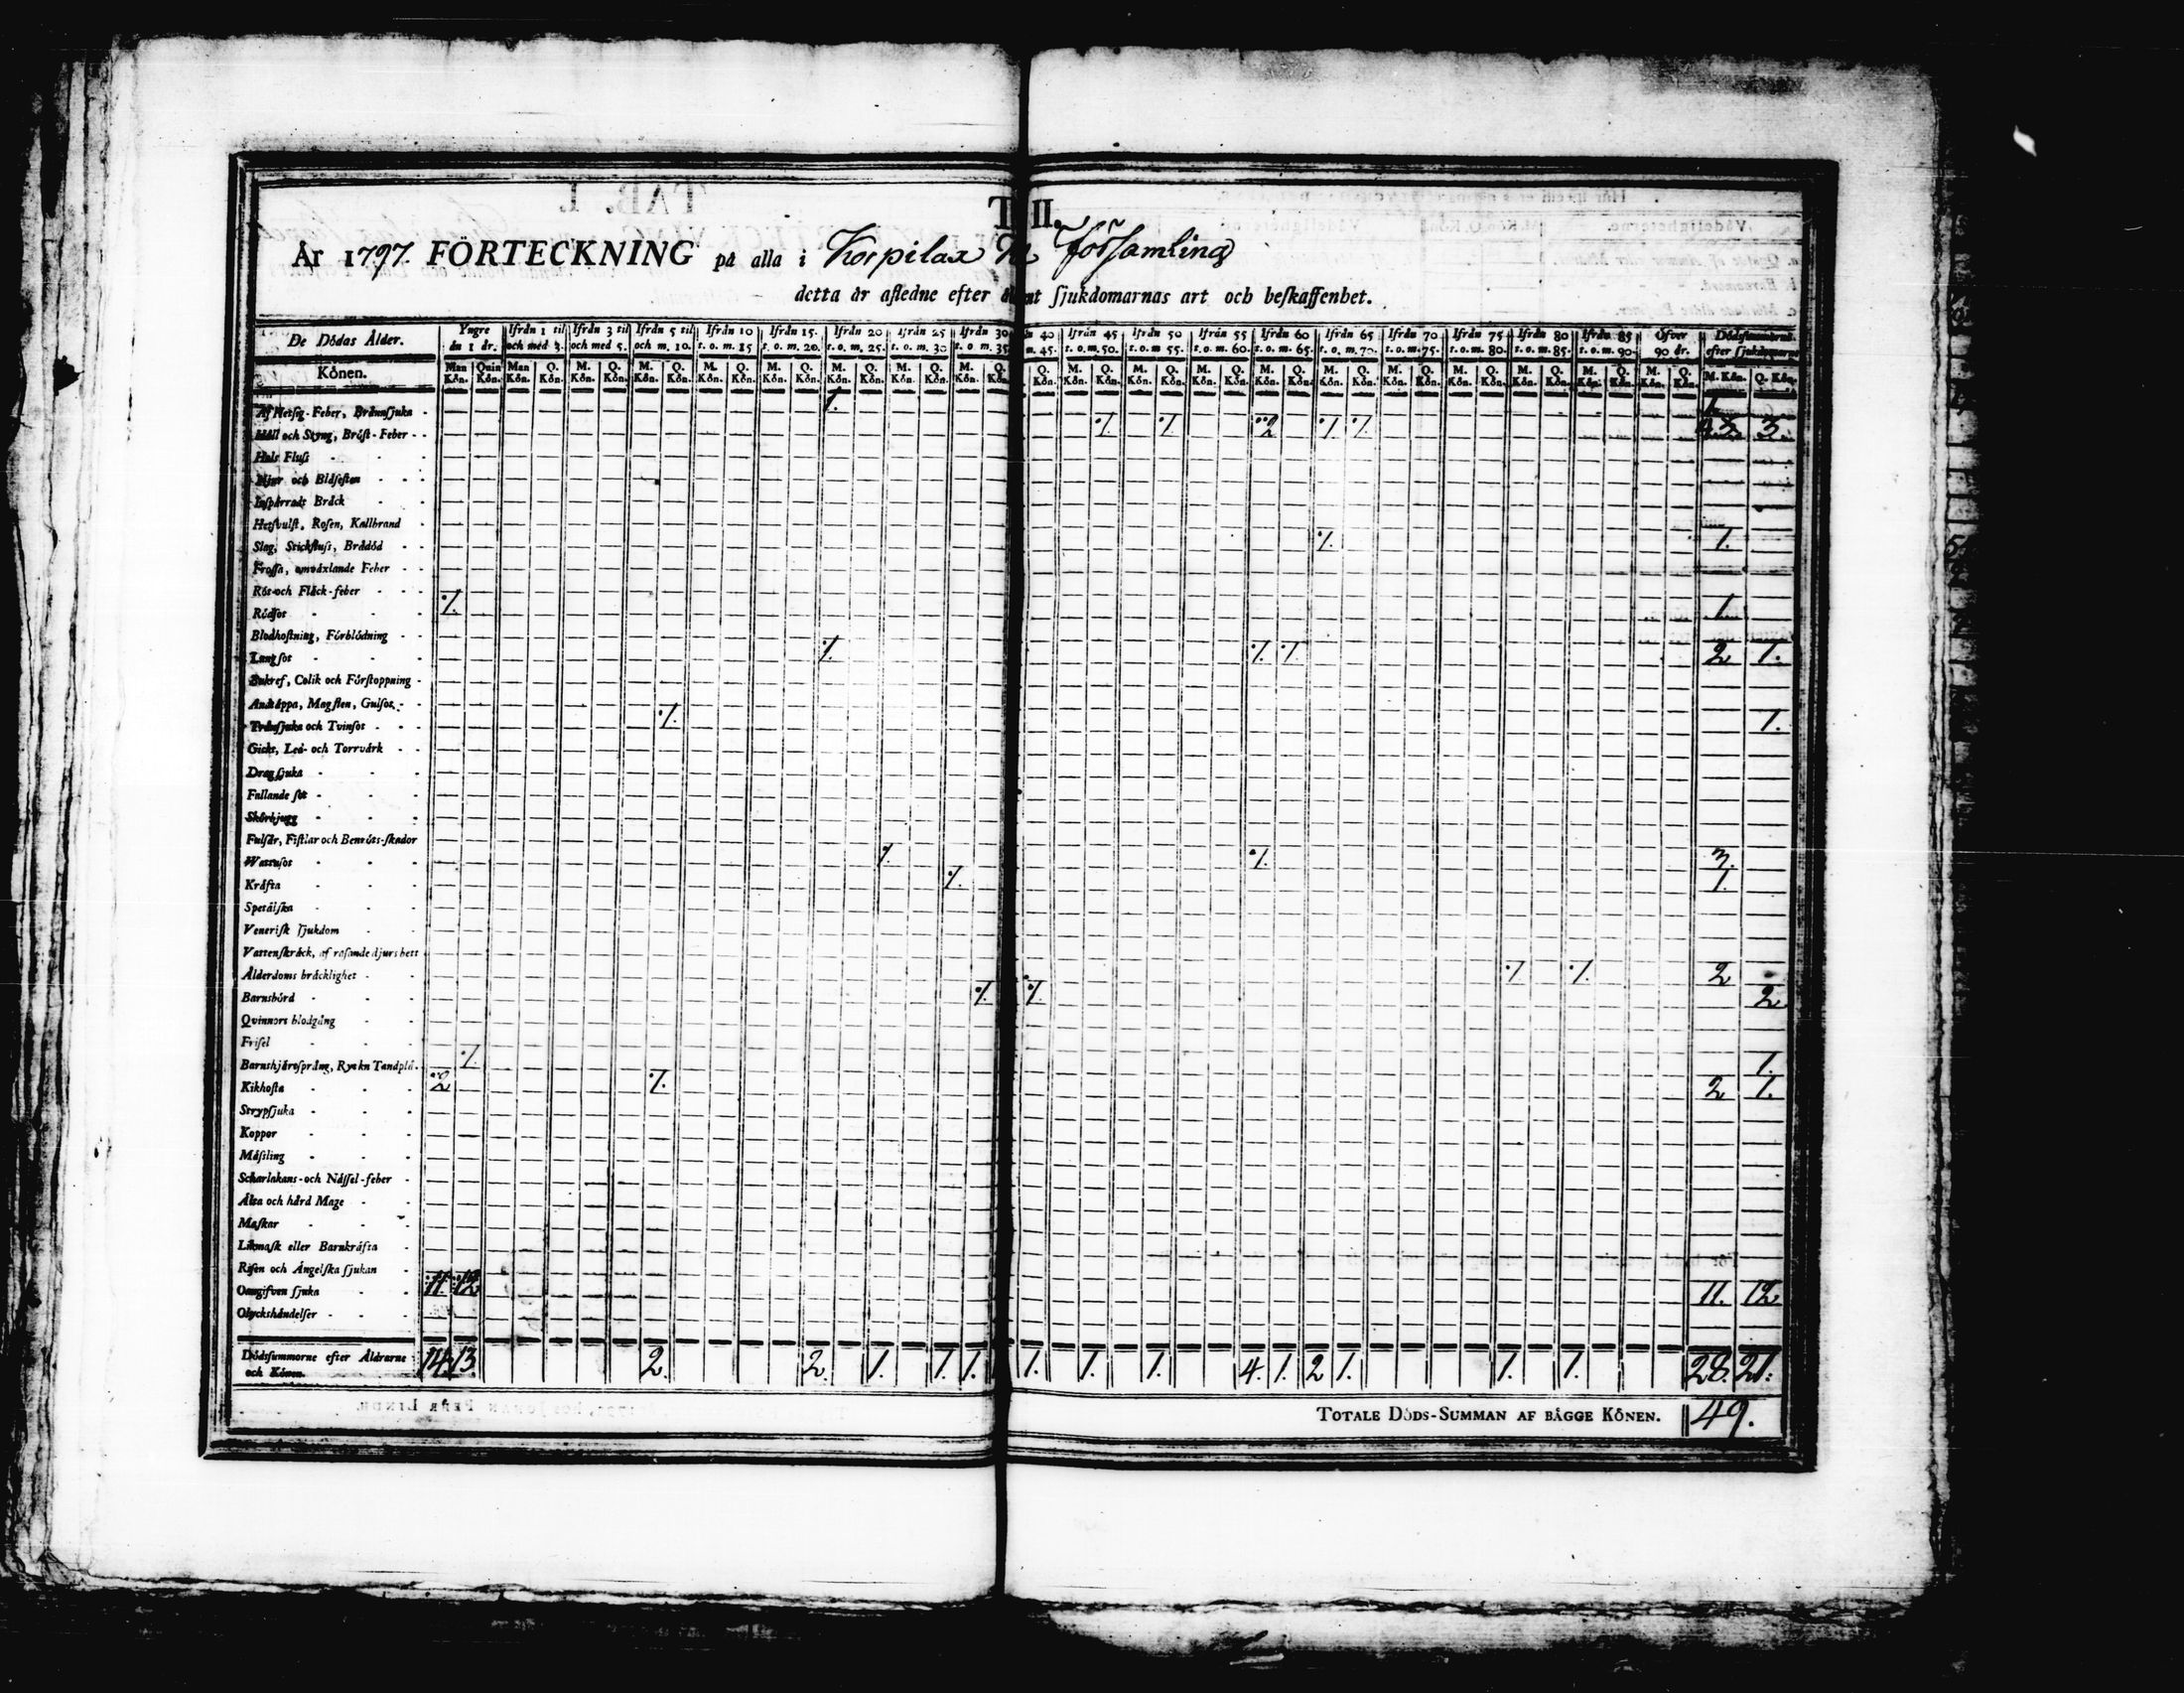 T II.
År 1797. FÖRTECKNING på alla i Korpilax Församling
detta år afledne efter ſjukdomarnas art och beſkaffenhet.
De Dödas Ålder. Yngre än 1 år. Ifrån 1 til och med 3. Ifrån 3 til och med 5. Ifrån 5 til och m. 10. Ifrån 10 t. o. m. 15 Ifrån 15. t. o. m. 20. Ifrån 20 t. o. m. 25. Ifrån 25 t. o. m. 30 Ifrån 30 t. o m. 35 40 m. 45. Ifrån 45 t. o. m. 50. Ifrån 50 t. o. m 55. Ifrån 55 t. o. m. 60. Ifrån 60 t. o. m. 65. Ifrån 65 t. o. m. 70. Ifrån 70 t. o. m. 75. Ifrån 75 t. o. m. 80. Ifrån 80 t. o. m. 85. Ifrån 85 t. o. m. 90. Öfver 90 år. Dödsſummorne efter ſjukdomarne
Könen. Man Kön. Quin Kön. Man Kön. Q. Kön. M. Kön. Q. Kön. M. Kön. Q. Kön. M. Kön. Q. Kön. M. Kön. Q. Kön. M. Kön. Q. Kön. M. Kön. Q. Kön. M. Kön. Q. Q. Kön. M. Kön. Q. Kön. M. Kön. Q. Kön. M. Kön. Q. Kön. M. Kön. Q. Kön. M. Kön. Q. Kön. M. Kön. Q. Kön. M. Kön. Q. Kön. M. Kön. Q. Kön. M. Kön. Q. Kön. M. Kön. Q. Kön. M. Kön. Q. Kön.
Af Hetſig-Feber, Brännſjuka 1. 1.
Håll och Styng, Bröſt-Feber 1. 1. 2 1. 1. 3. 3.
Hals Fluſs
Njur och Blåſeſten
Inſpärradt Bråck
Hetſvulſt, Roſen, Kallbrand
Slag, Stickfluſs, Brådöd 1. 1.
Froſſa, omväxlande Feber
Röt-och Fläck-feber
Rödſot 1. 1.
Blodhoſtning, Förblödning
Lungſot 1. 1. 1. 2 1.
Bukref, Colik och Förſtoppning
Andtäppa, Magſten, Gulſot,
Tränſjuka och Tvinſot 1. 1.
Gickt, Led- och Torrvärk
Dragſjuka
Fallande ſot
Skörbjugg
Fulſår, Fiſtlar och Benröts-ſkador
Wattuſot 1. 1. 3.
Kräfta 1. 1.
Spetälſka
Veneriſk ſjukdom
Vattenſkräck, af raſande djurs bett
Ålderdoms bräcklighet 1. 1. 2
Barnsbörd 1. 1. 2
Qvinnors blodgång
Friſel
Barnshjäreſprång, Ryckn Tandplå. 1. 1.
Kikhoſta 2 1. 2 1.
Strypſjuka
Koppor
Mäſsling
Scharlakans-och Näſſel-feber
Älta och hård Mage
Maſkar
Likmaſk eller Barnkräfta
Riſen och Ångelſka ſjukan
Oangifven ſjuka 11. 12 11. 12
Olyckshändelſer
Dödsſummorne efter Åldrarne och Könen. 14. 13. 2. 2. 1. 1. 1. 1. 1. 1. 4. 1. 2 1. 1. 1. 28. 21.
TOTALE DÖDS-SUMMAN AF BÄGGE KÖNEN. 49.